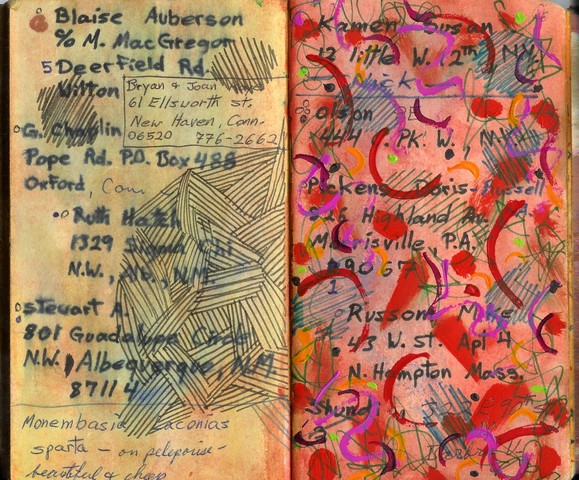 Blaise Auberson
% M. MacGregor
5 Deerfield Rd.
Wilton
Bryan & Joan
61 Ellsworth st.
New Haven, Conn.
06520 776-2662
G. Chaplin
Pope Rd. P.O. Box 488
Oxford, Conn
Ruth Hatch
1329 Sigma Chi
N.W., Alb., N.M.
Stewart A.
801 Guadalupe Circle
N.W., Albequerque, N.M.
87114
Monembasia Laconias
sparta - on peleponise -
beautiful & cheap
Kamen Susan
12 little W. 12th N.Y.
Nick
Olson
444 . PK. W., N.Y.
Pickens Doris-Russell
Highland Av.
Morrisville, P.A.
19067
Russom Mike
43 W. St. Apt 4
N. Hampton Mass.
Shundi